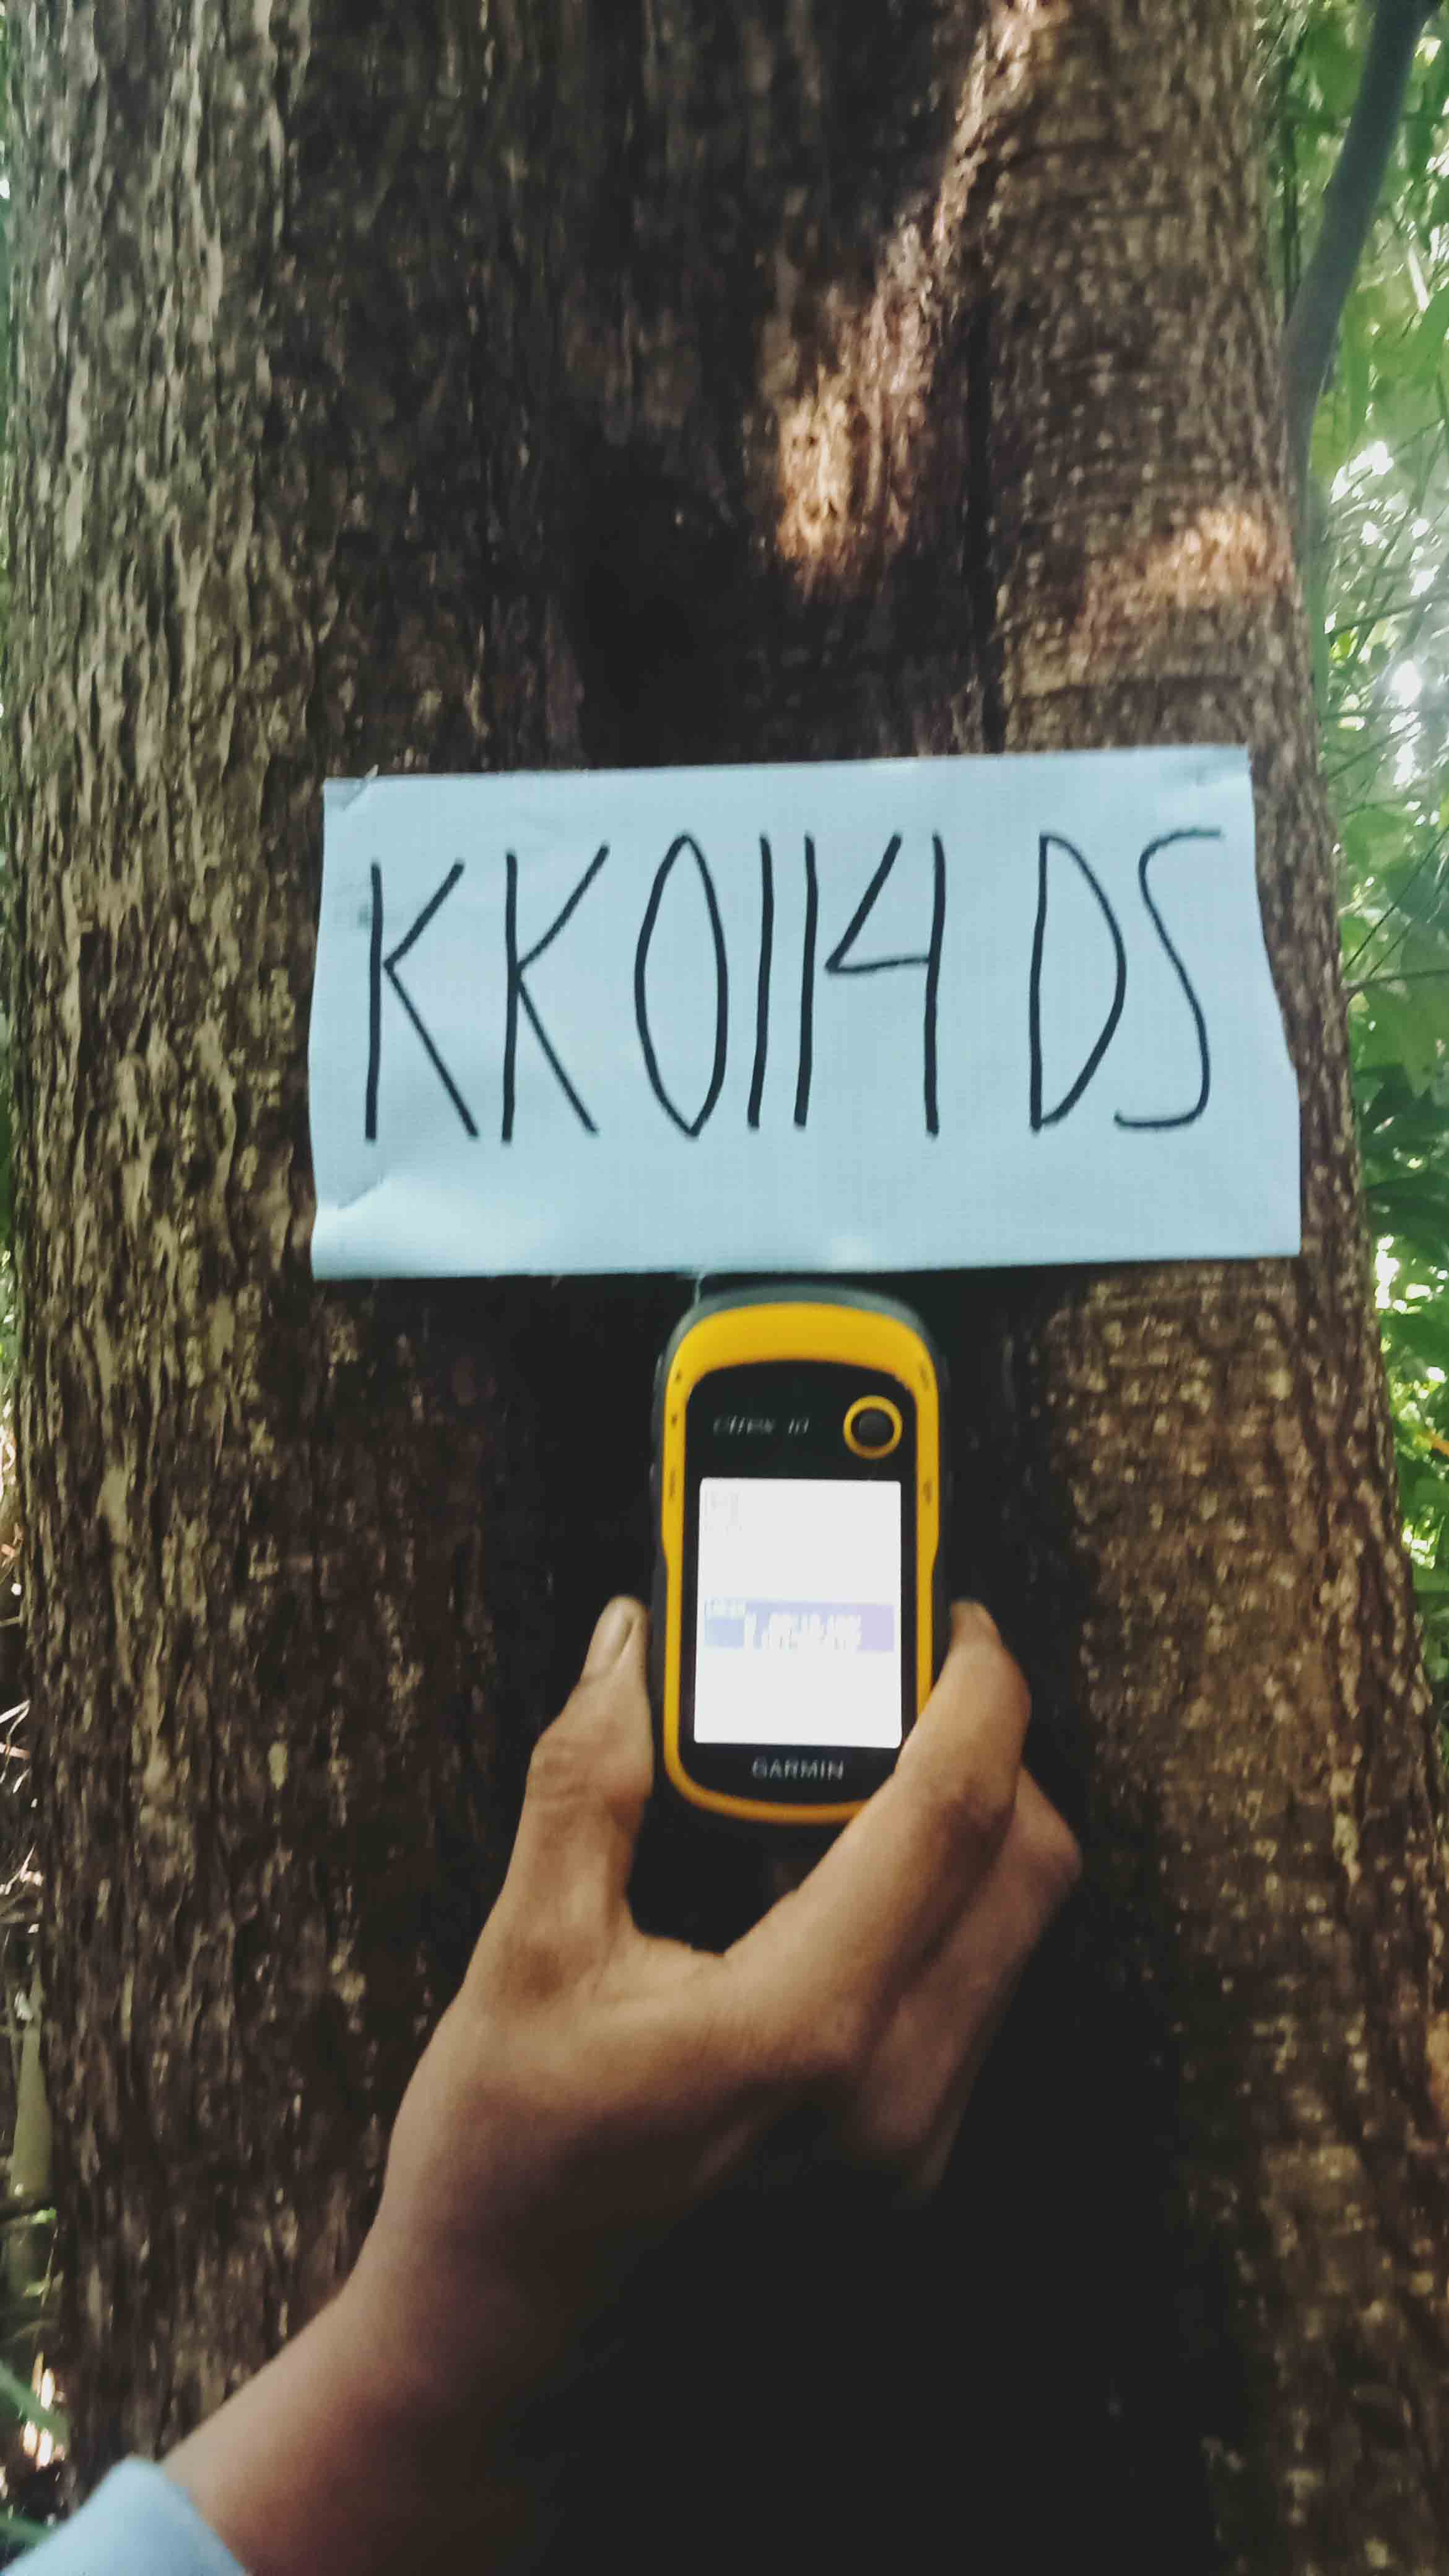 KK0114 DS
etrex 10
GARMIN